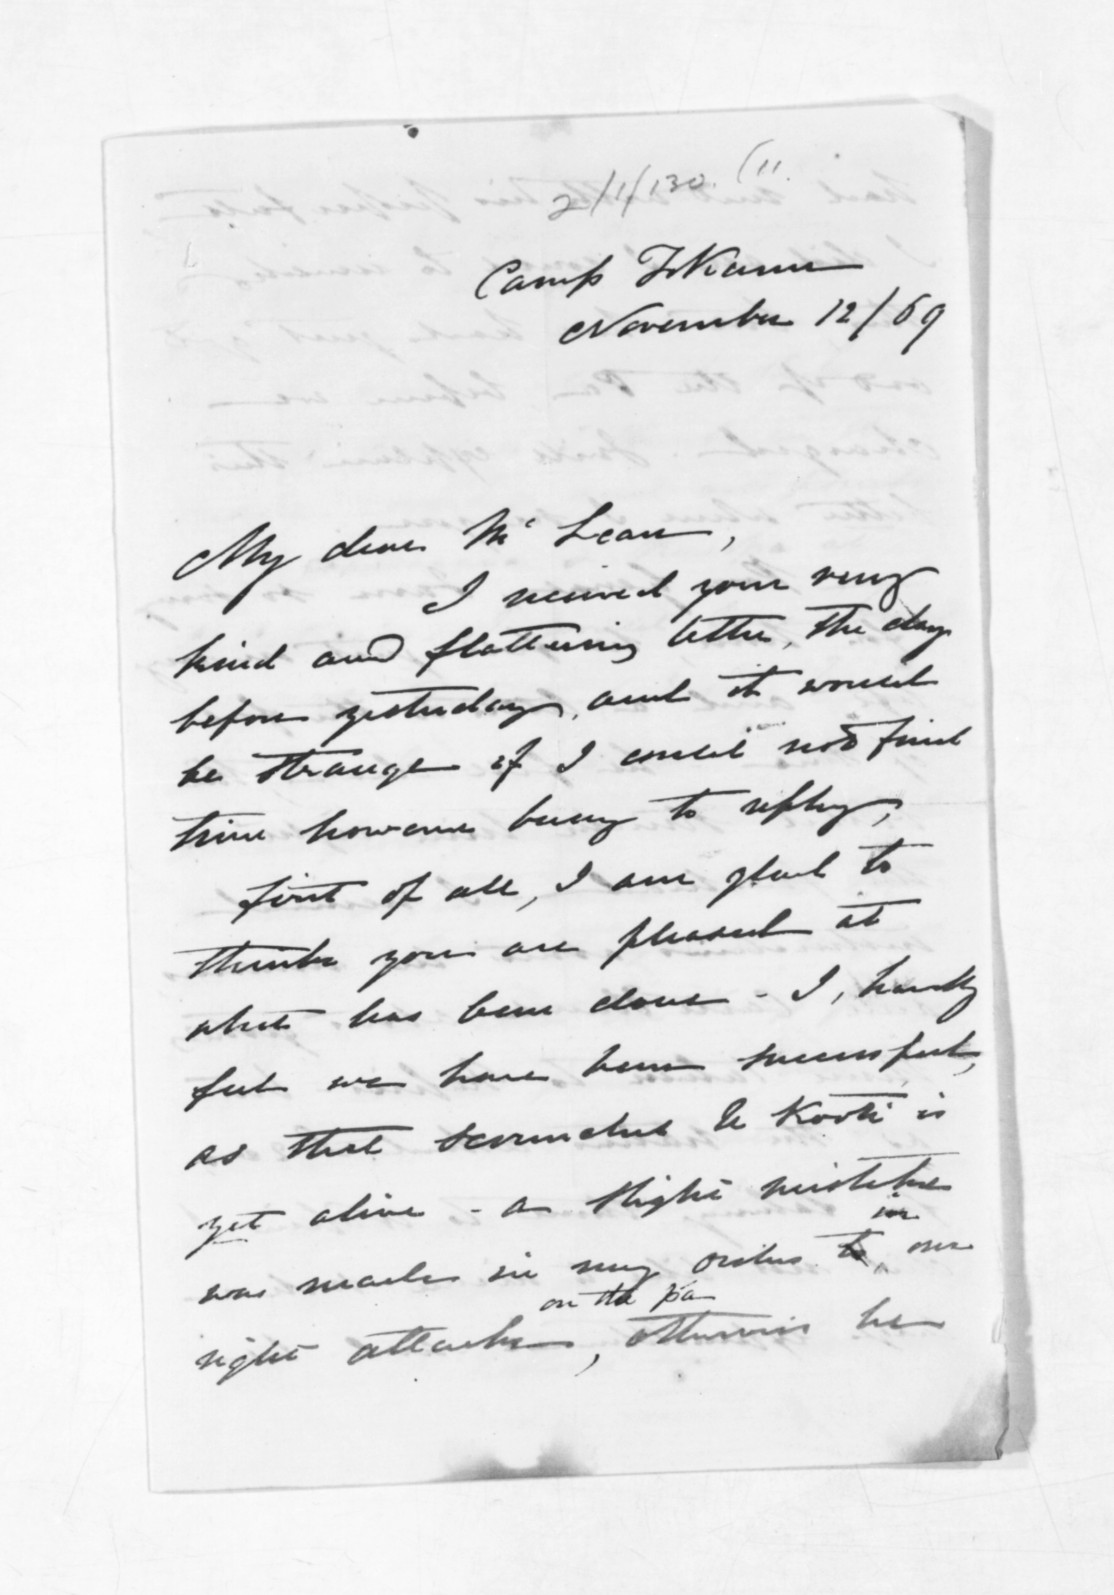 2/1/130. (11.
Camp
November 12/69
My dear Mc Lean,
I received your very
kind and flattering letter, the day
before yesterday, and it would
be strange if I could not find
time however busy to reply,
first of all, I am glad to
think you are pleased at
what has been done - I, hardly
feel we have been successful,
as that scoundrel Te Kooti is
yet alive - a slight mistake
in
was made in my orders to our
on the pa
right attack, otherwise he